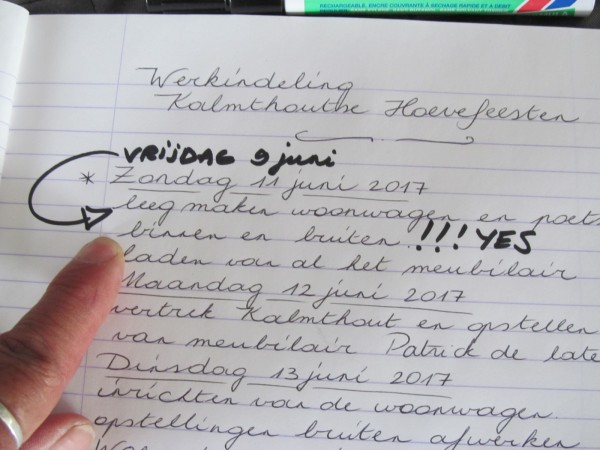 RECHARGEABLE, ENCRE COURANTE À SÉCHAGE RAPIDE ET A DEBIT
Werkindeling
Kalmthoutse Hoevefeesten
VRIJDAG 9 juni
* Zondag 11 juni 2017
leeg maken woonwagen en poets
binnen en buiten. !!! YES
laden van al het meubilair
Maandag 12 juni 2017
vertrek Kalmthout en opstellen
van meubilair Patrick de late
Dinsdag 13 juni 2017
inrichten van de woonwagen.
opstellingen buiten afwerken